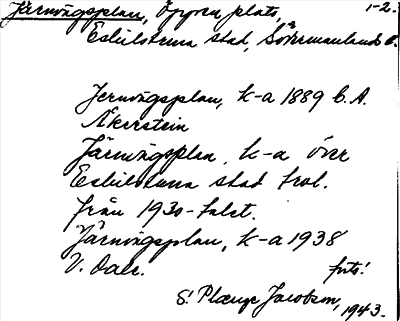 Järnvägsplan, öppen plats, 1-2.
Eskilstuna stad, Södermanlands
Jernvägsplan, k-a 1889 C.A.
Åkerstein
Järnvägsplan, k-a över
Eskilstuna stad trol.
från 1930-talet.
Järnvägsplan, k-a 1938
V. Dahl. forts!
S. Plænge Jacobson, 1943.